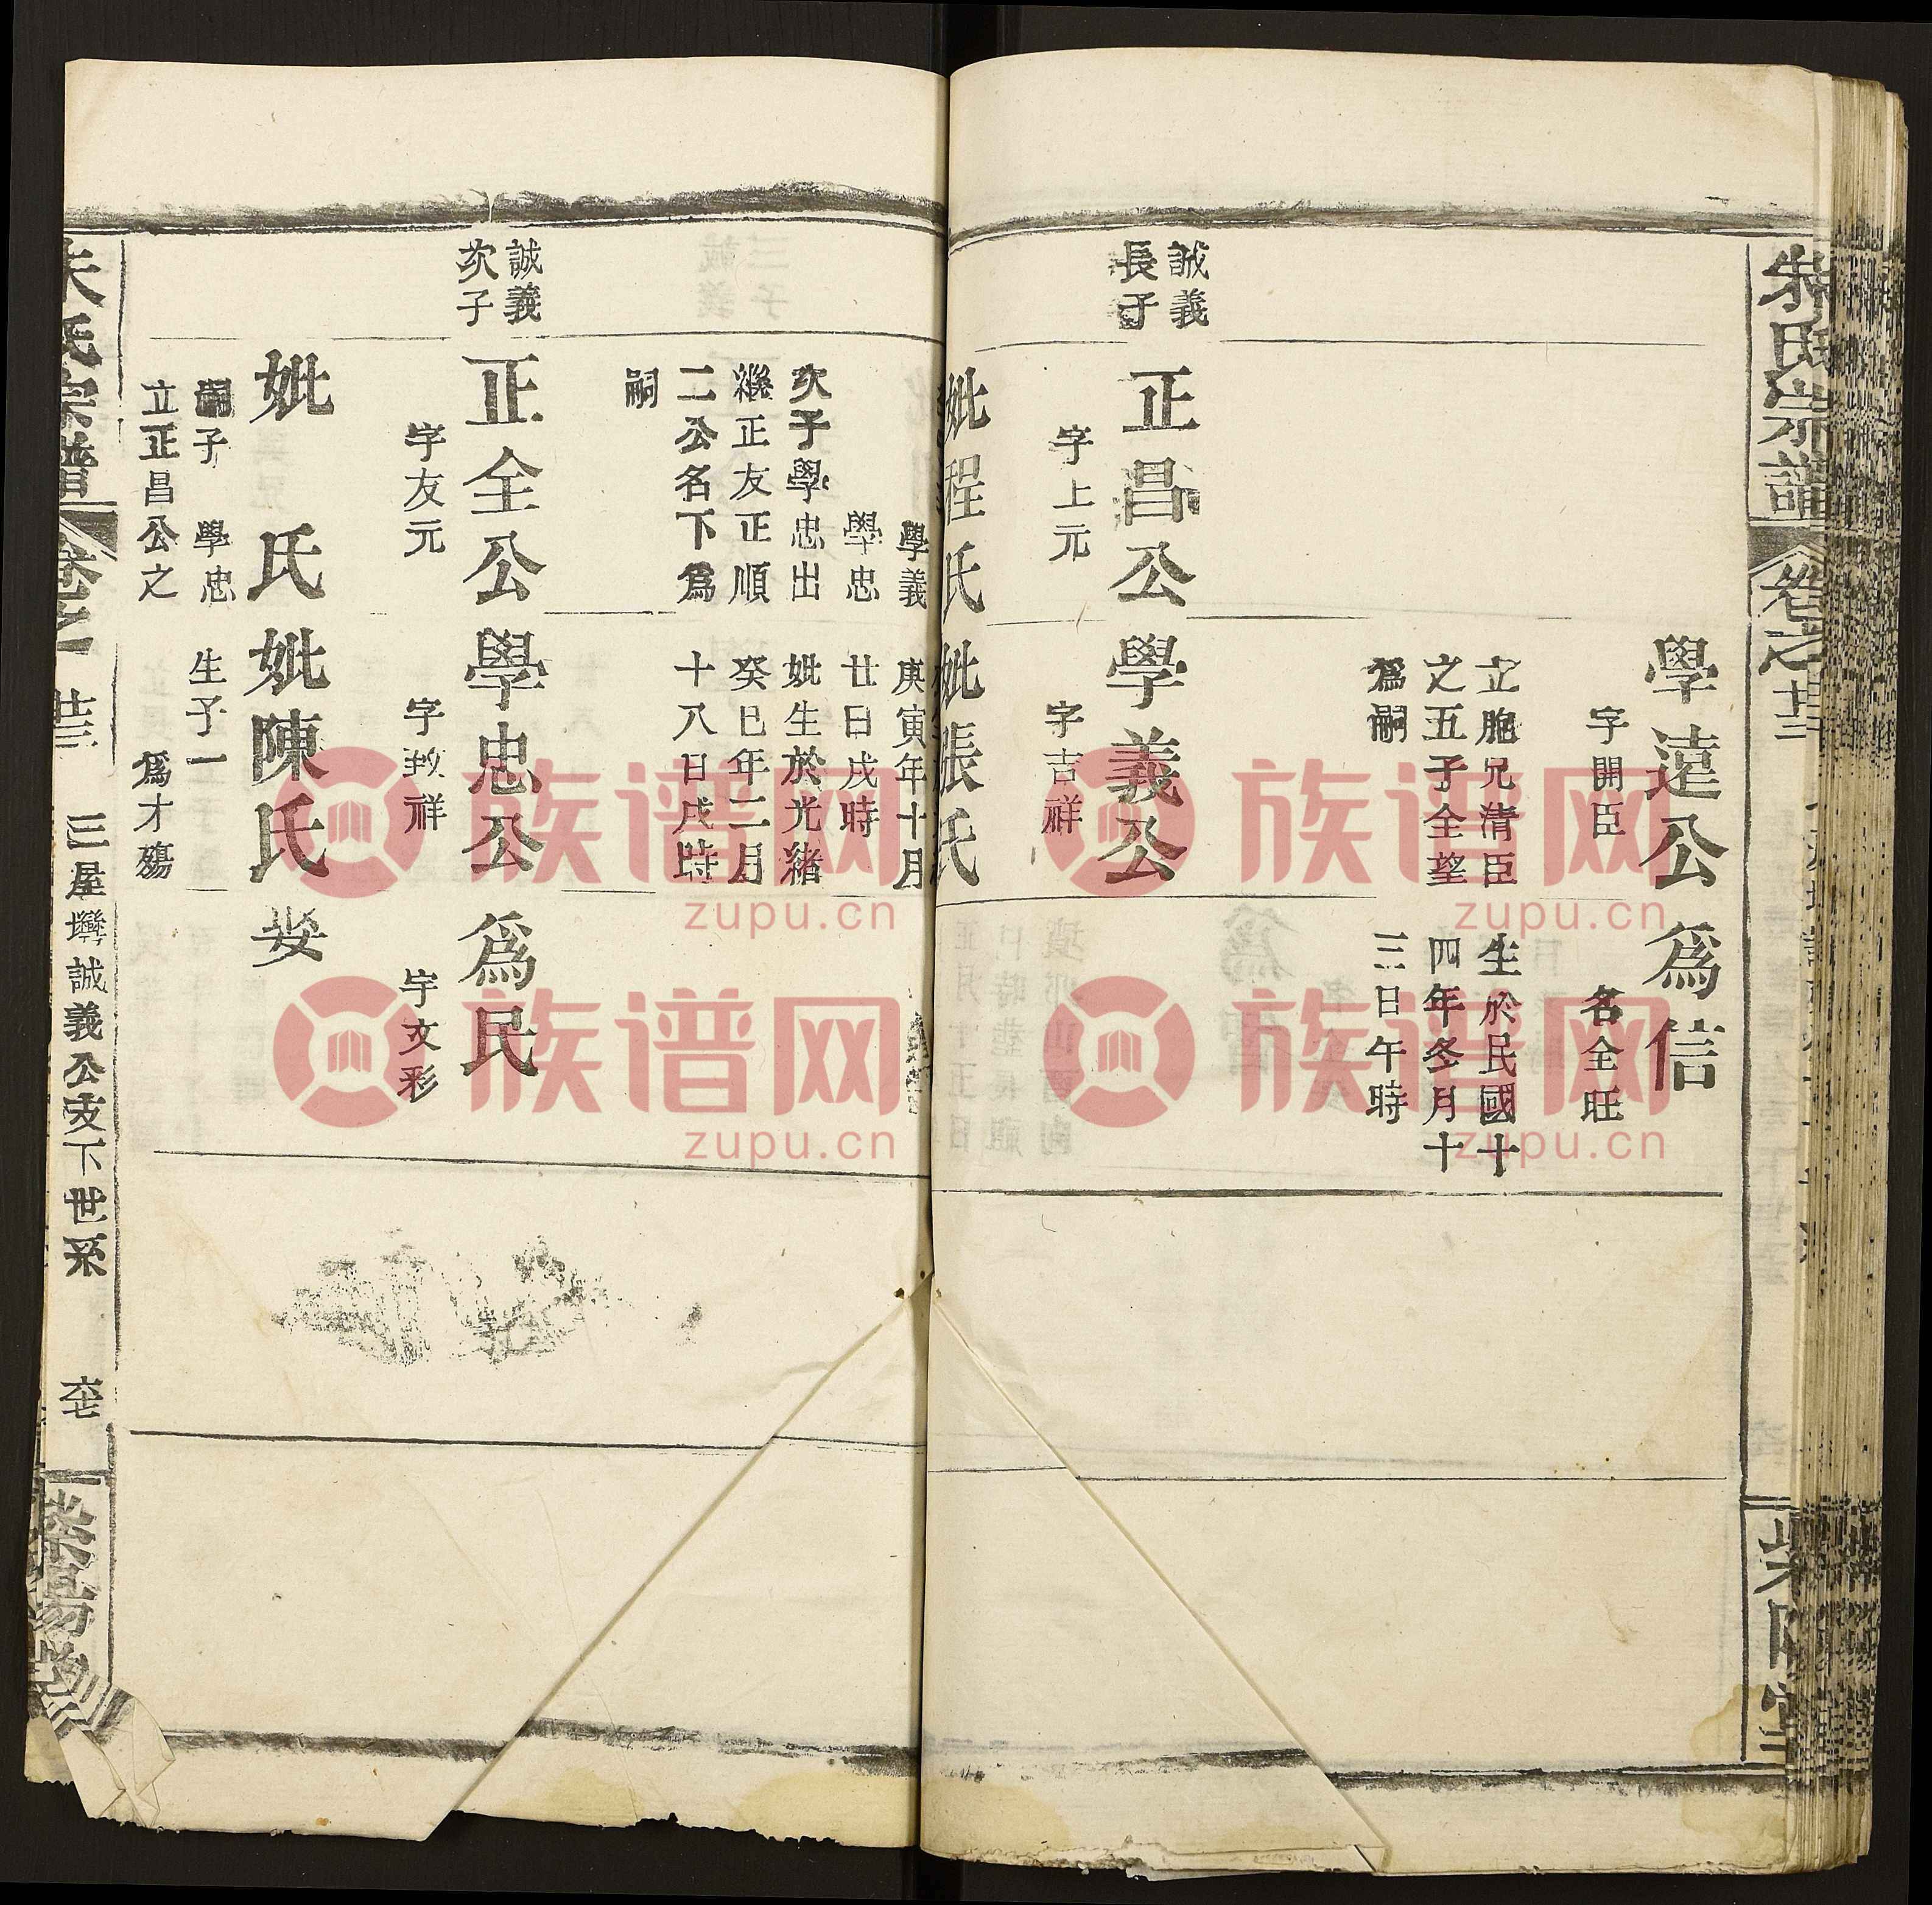 朱氏宗譜
卷之
廿三
學遠公
字開臣
立胞兄清臣
之五子全望
爲嗣
爲信
名全旺
生於民國十
四年冬月十
三日午時
誠義
長子
正昌公
字上元
學義公
字吉祥
妣程氏
妣張氏
學義
學忠
次子學忠出
繼正友正順
二公名下爲
嗣
庚寅年十月
廿日戌時
妣生於光緒
癸巳年二月
十八日戌時
誠義
次子
正全公
字友元
學忠公
字致祥
爲民
字文彩
妣 氏
妣陳氏
安
嗣子 學忠
立正昌公之
生子一
爲才殤
朱氏宗譜
卷之
廿三
三屋墈誠義公支下世系
紫陽堂
族谱网
zupu.cn
族谱网
zupu.cn
族谱网
zupu.cn
族谱网
zupu.cn